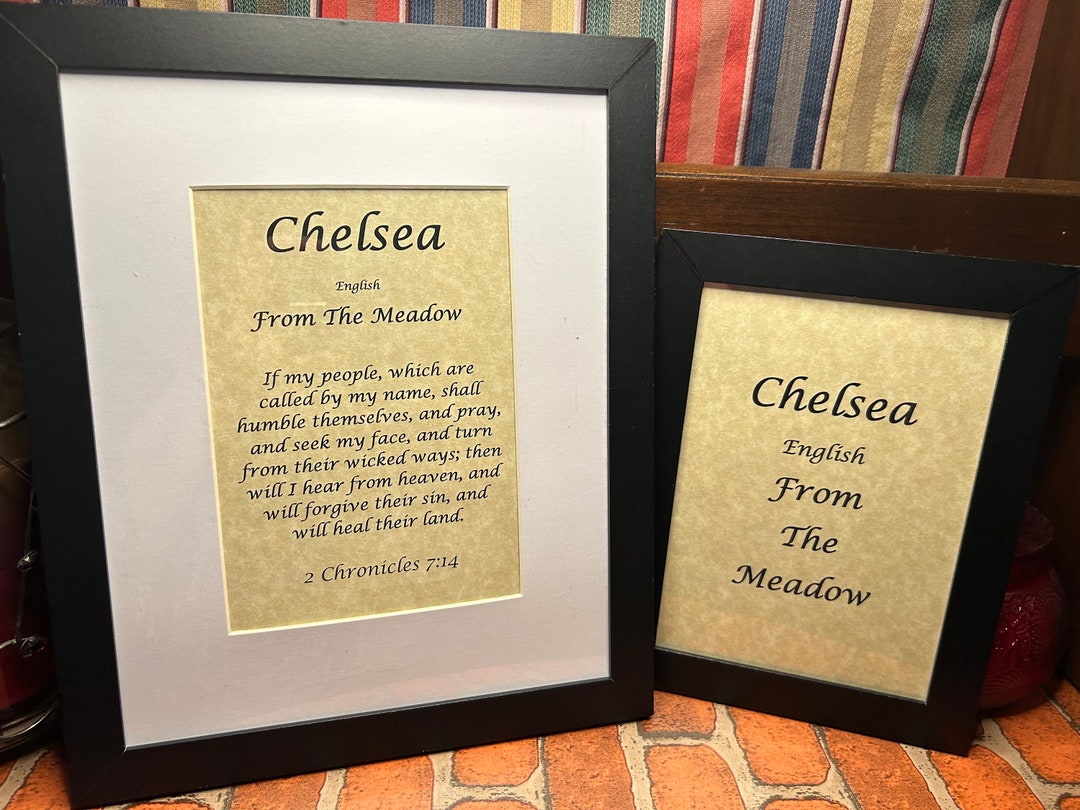 Chelsea
English
From The Meadow
If my people, which are
called by my name, shall
humble themselves, and pray,
and seek my face, and turn
from their wicked ways; then
will I hear from heaven, and
will forgive their sin, and
will heal their land.
2 Chronicles 7:14
Chelsea
English
From
The
Meadow